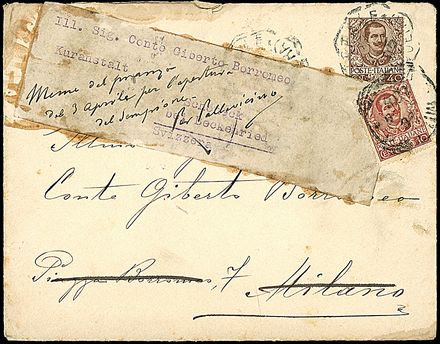 Ill. Sig. Conte Giberto Borromeo
Kuranstalt
Sonneck
bei Beckenried
Svizzera
Menu del pranzo
del 3 Aprile per l'apertura
del Sempione
POSTE ITALIANE
40
POSTE ITALIANE
10
Conte Giberto Borromeo
Piazza Borromeo, 7 Milano